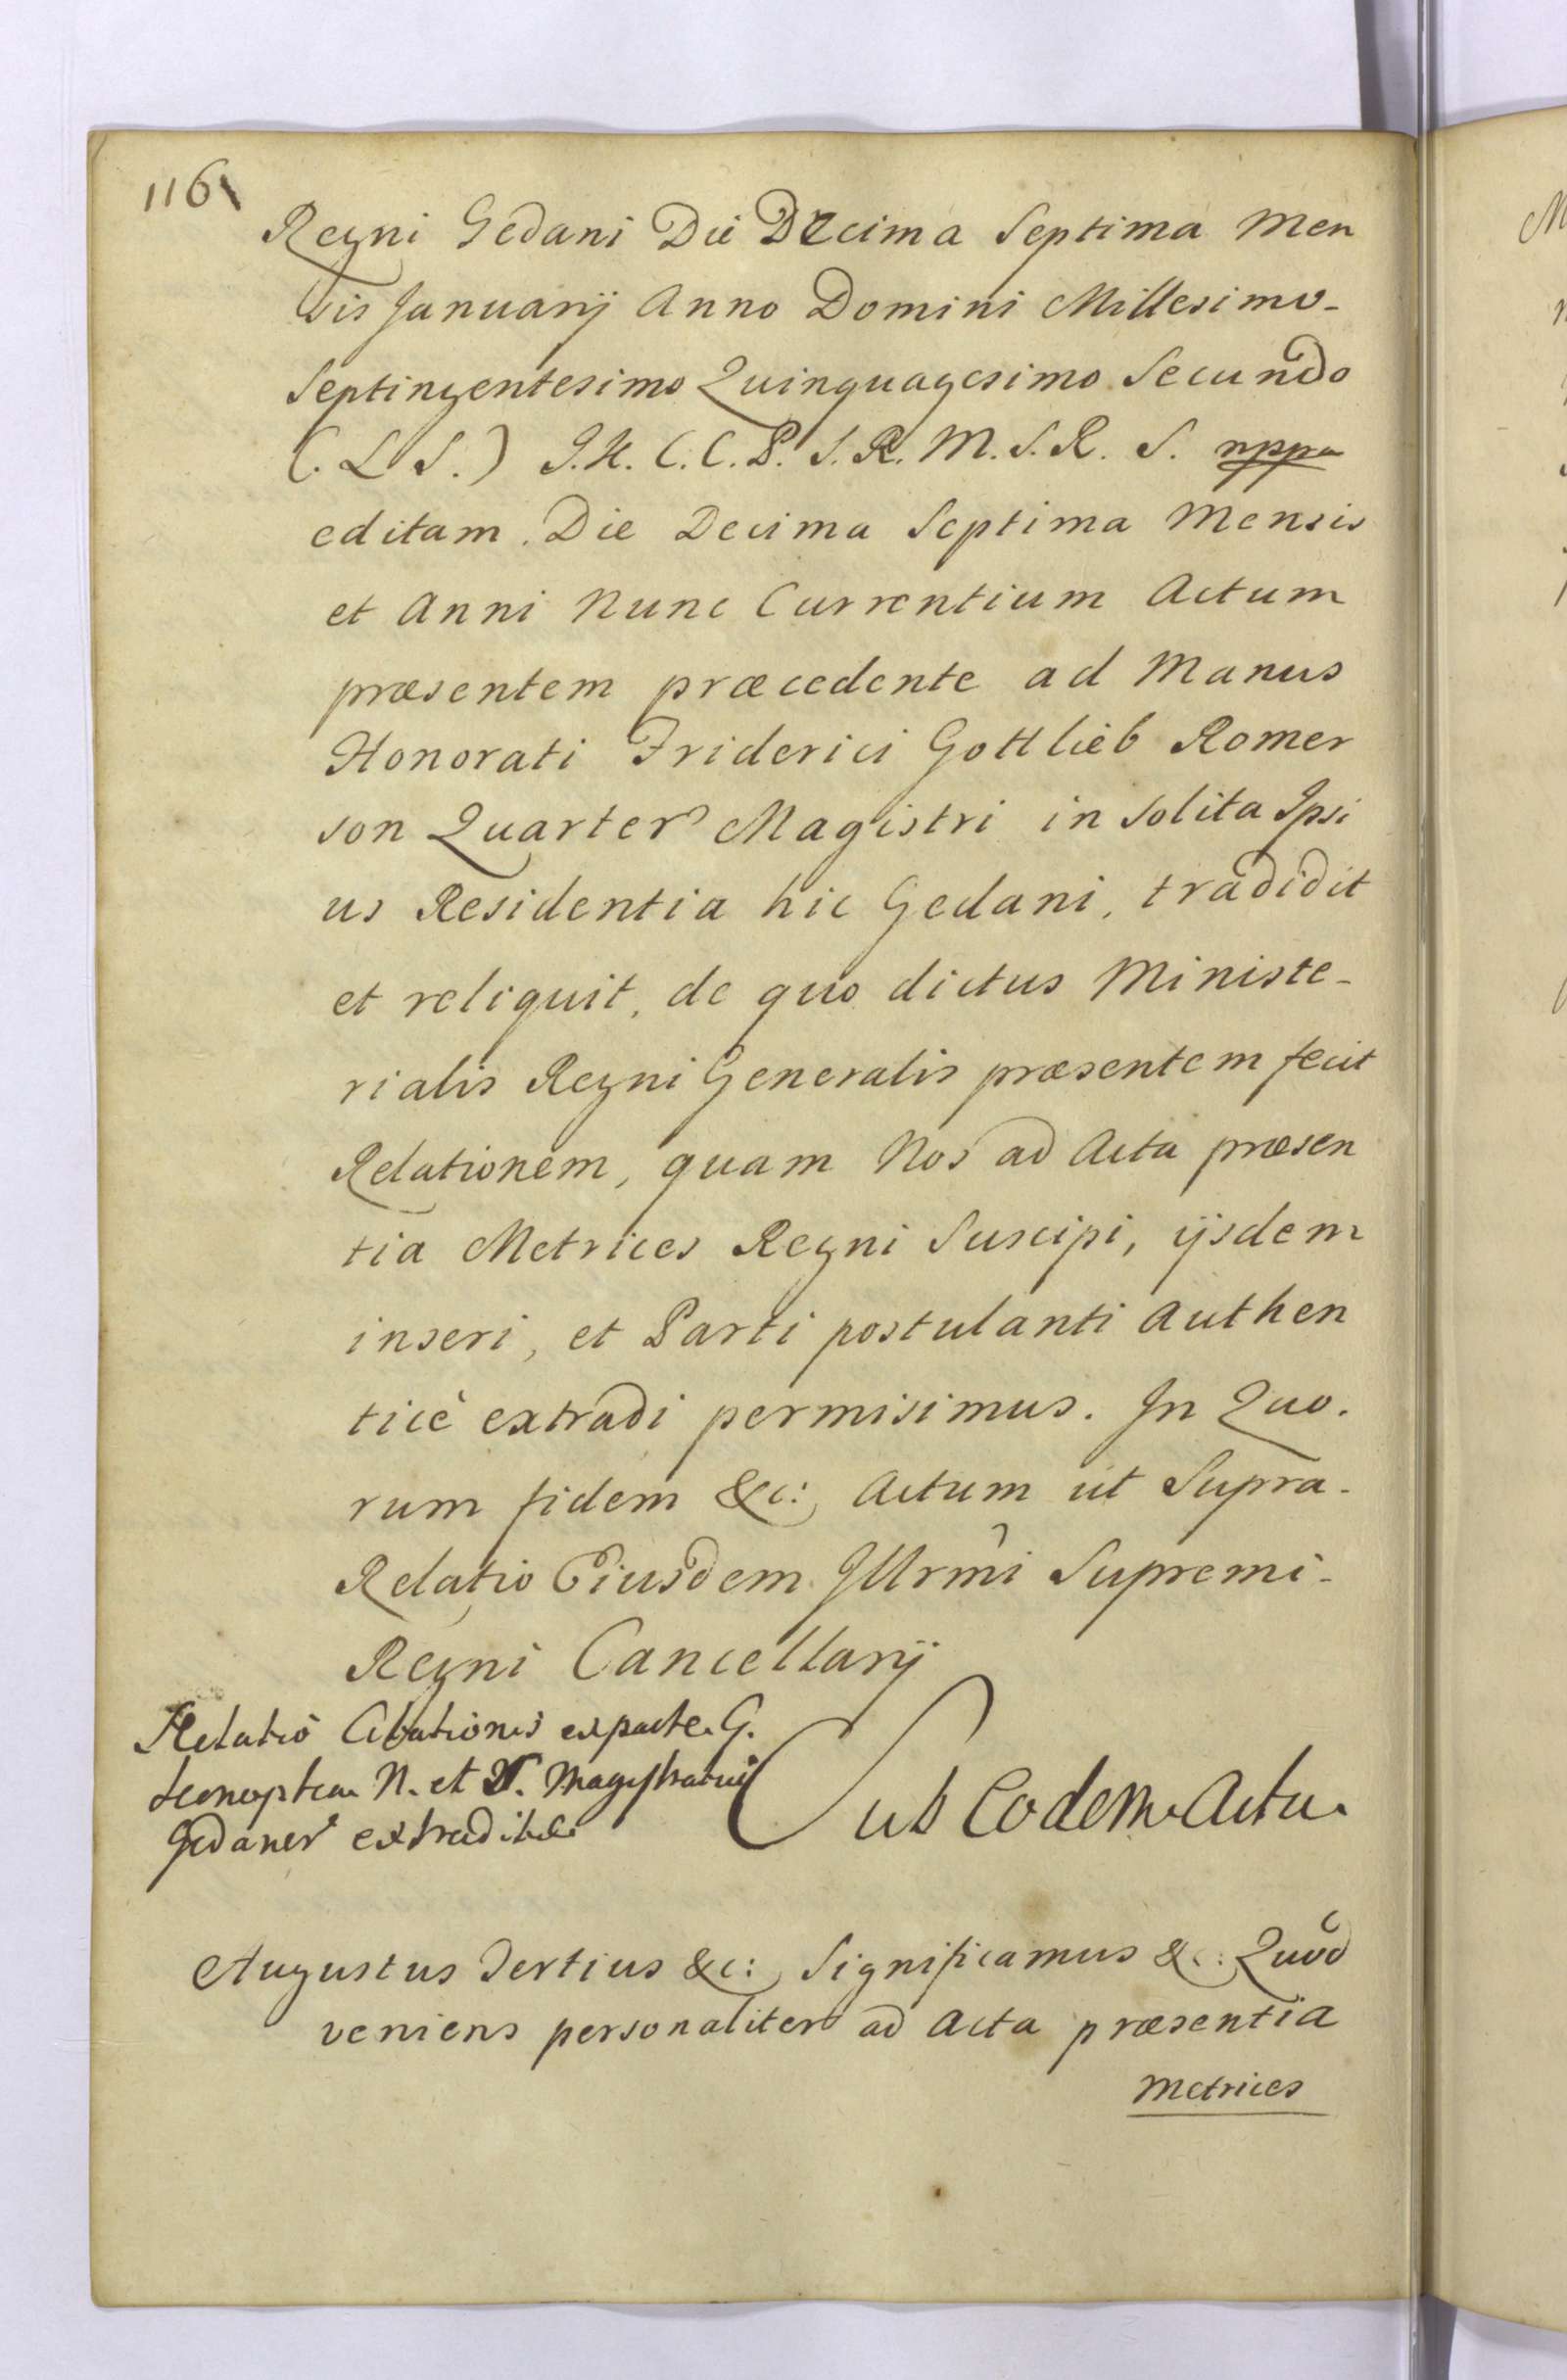 116
Regni Gedani Die Decima Septima Men
sis Januarij Anno Domini Millesimo-
Septingentesimo Quinquagesimo Secundo
(. L S.) J. H. C. C. P. S. R. M. S. R. S. mppa
editam. Die Decima Septima Mensis
et Anni Nunc Currentium Actum
præsentem præcedente ad Manus
Honorati Friderici Gottlieb Romer
son Quarter Magistri in solita Ipsi
us Residentia hic Gedani, tradidit
et reliquit, de quo dictus Ministe-
rialis Regni Generalis præsentem fecit
Relationem, quam Nos ad Acta præsen
tia Metrices Regni Suscipi, ijsdem
inseri, et Parti postulanti Authen
ticè extradi permisimus. In Quo.
rum fidem &c: Actum ut Supra.
Relatio Eiusdem Illrmi Supremi-
Regni Cancellarij
Relatio Citationis ex parte G.
N. et N. Magistratui
Gedanen extraditæ
Sub Eodem Actu.
Augustus Tertius &c: Significamus &c: Quòd
veniens personaliter ad Acta præsentia
Metrices